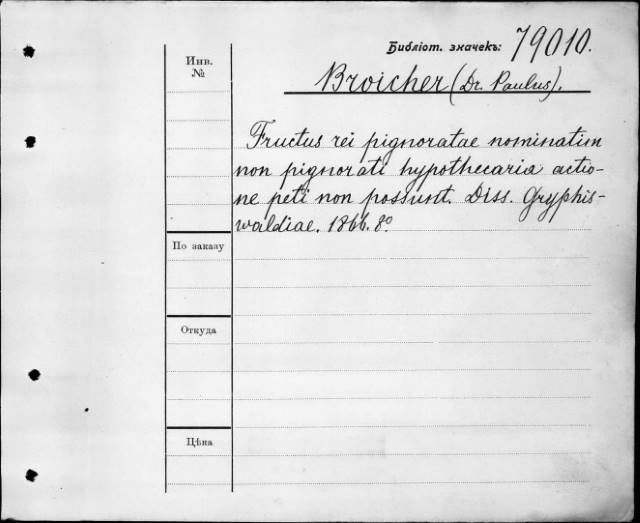 Библіот. значекъ: 79010.
Инв. №
Broicher (Dr. Paulus).
Fructus rei pignoratae nominatim
non pignorati hypothecaria actio-
ne peti non possunt. Diss. Gryphis-
waldiae. 1866. 8º.
По заказу
Откуда
Цѣна